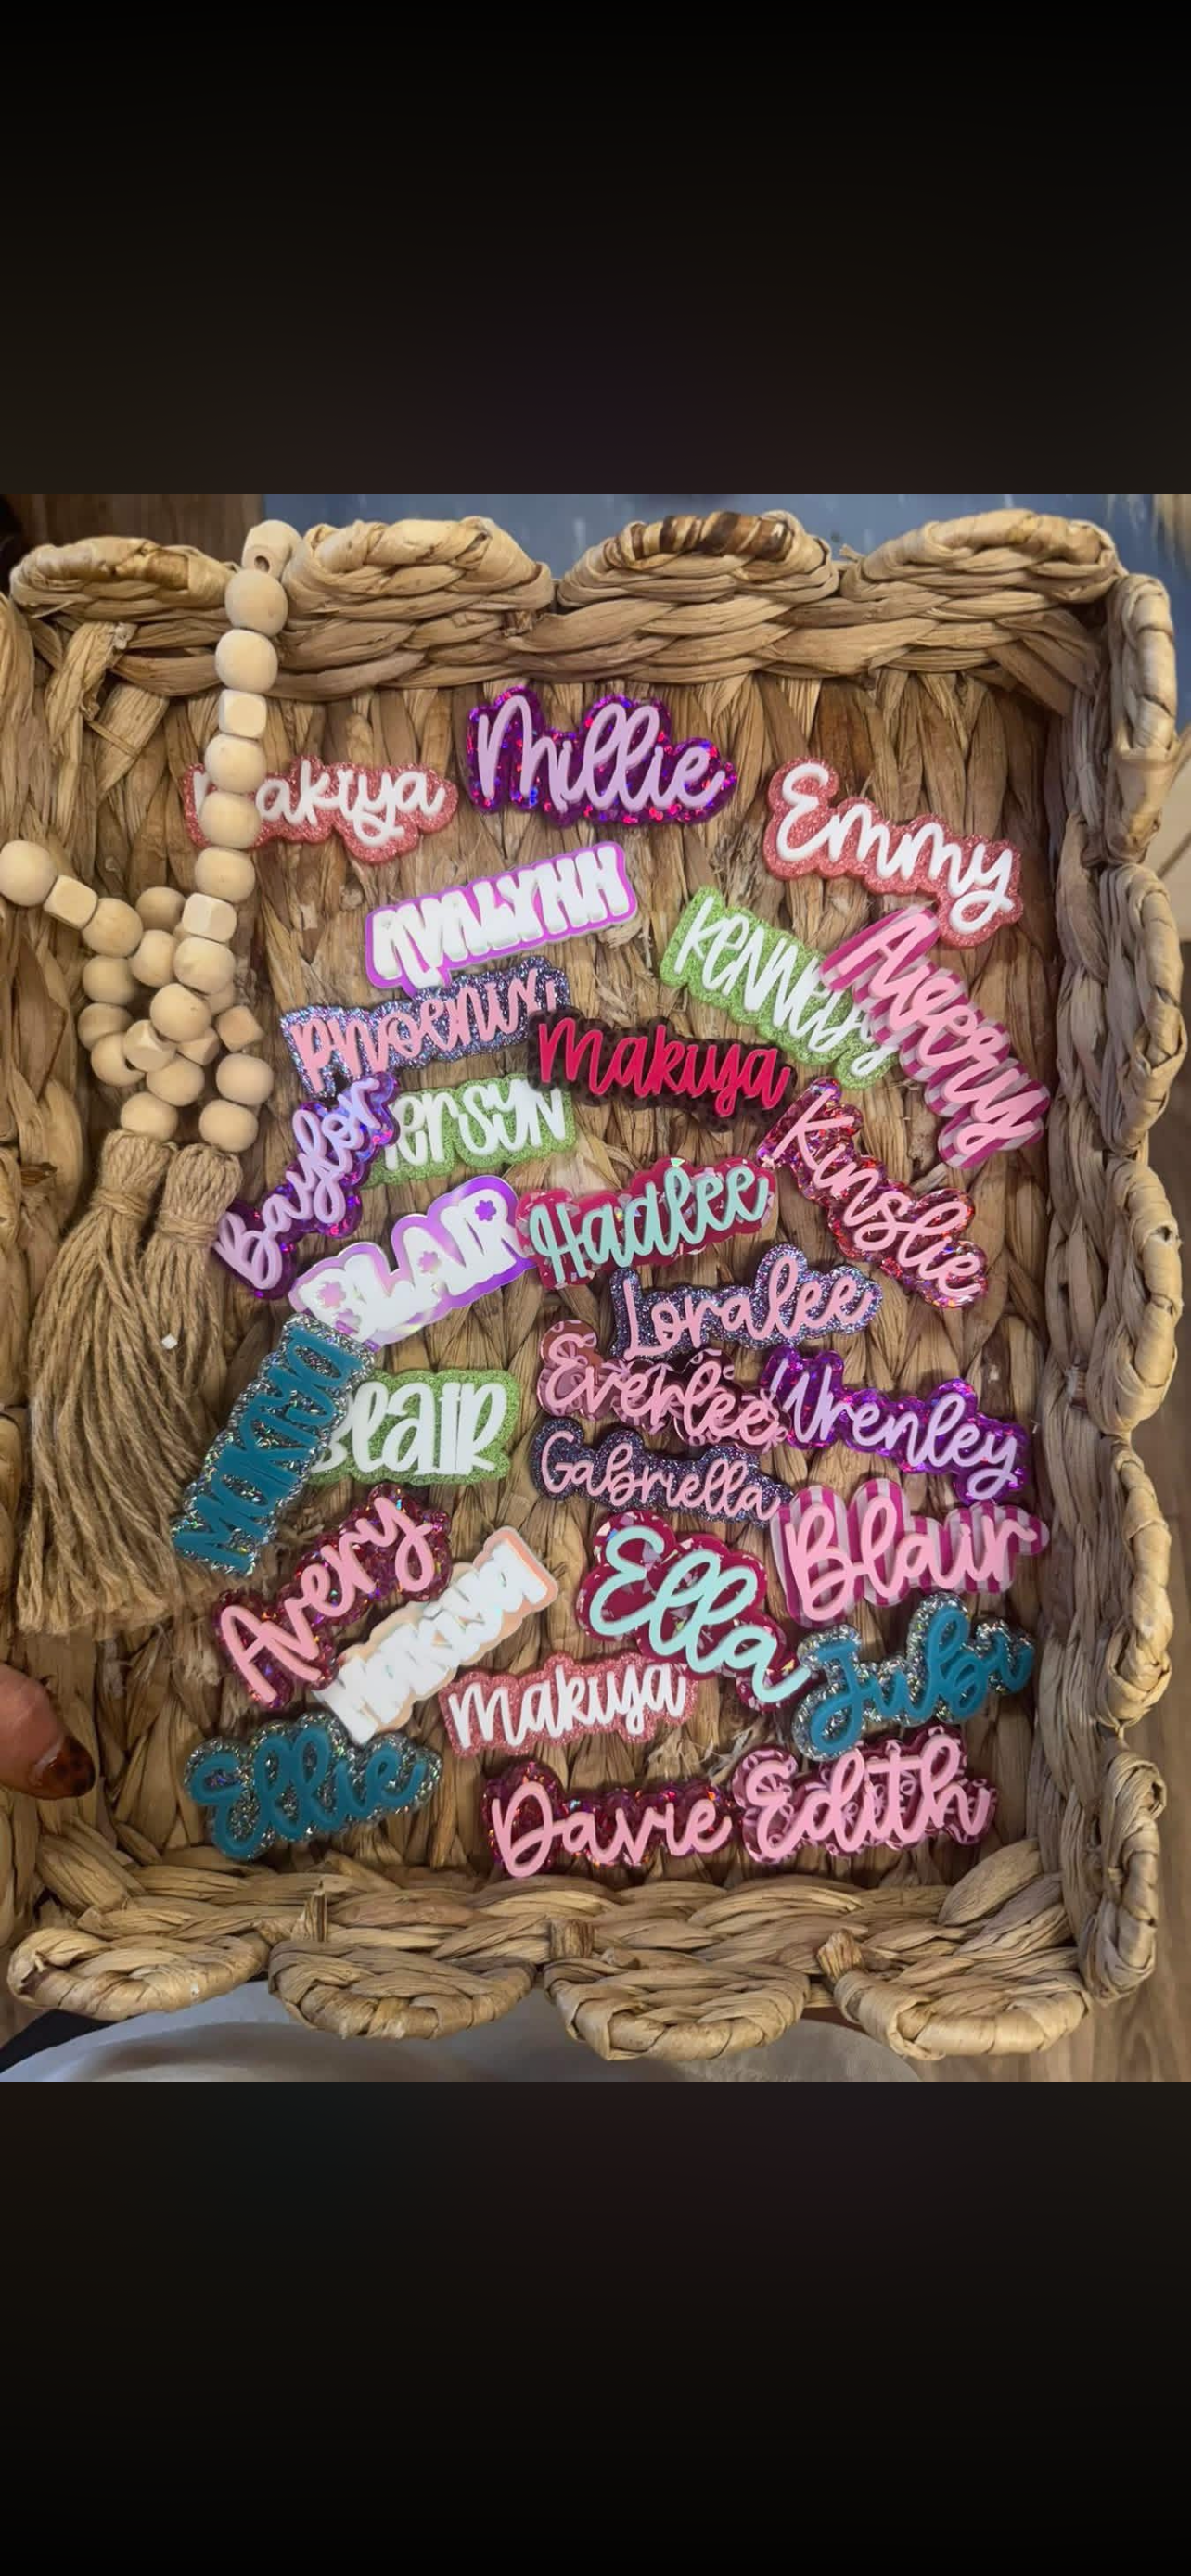 Makiya
Millie
Emmy
AVALYNN
KENNedy
Avery
Phoenix
Makiya
ersyn
Baylor
Kinslie
Hadlee
BLAIR
Loralee
Everlee
Wrenley
Makiya
Blair
Gabriella
Blair
Avery
Ella
Makiya
Jubi
Makiya
Ellie
Davie
Edith